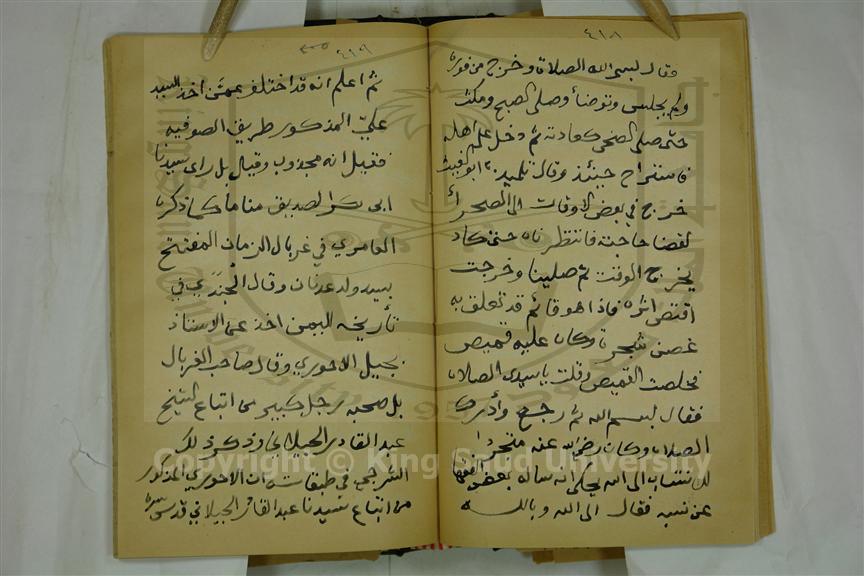 ٤١٨
وقال بسم الله الصلاة وخرج من فوره
ولم يجلس وتوضأ وصلى الصبح ومكث
حتى صلى الضحى كعادته ثم دخل على اهله
فاستراح حينئذ وقال تلميذه ابو الغيث
خرج في بعض الاوقات الى الصحراء
لقضا حاجته فانتظرناه حتى كاد
يخرج الوقت ثم صلينا وخرجت
اقتص اثره فاذا هو قائم قد تعلق به
غصن شجرة وكان عليه قميص
فخلصت القميص وقلت يا سيدي الصلاة
فقال بسم الله ثم رجع وأدرك
الصلاة وكان رضي الله عنه متجردا
للانتساب الى الله يحكى انه ساله بعض الفقها
عن نسبه فقال الى الله وبالله
٤١٩
ثم اعلم انه قد اختلف عمن اخذ السيد
علي المذكور طريق الصوفيه
فقيل انه مجذوب وقيل بل راى سيدنا
ابي بكر الصديق مناما كما ذكره
العامري في غربال الزمان المفتتح
بسيد ولد عدنان وقال الجندي في
تأريخه لليمن اخذ عن الاستاذ
بجيل الاحوري وقال صاحب الغربال
بل صحبه رجل كبير من اتباع الشيخ
عبد القادر الجيلاني وذكر ذلك
الشرجي في طبقاته ان الاحوري المذكور
من اتباع سيدنا عبد القادر الجيلاني قدس سره
Copyright © King Saud University